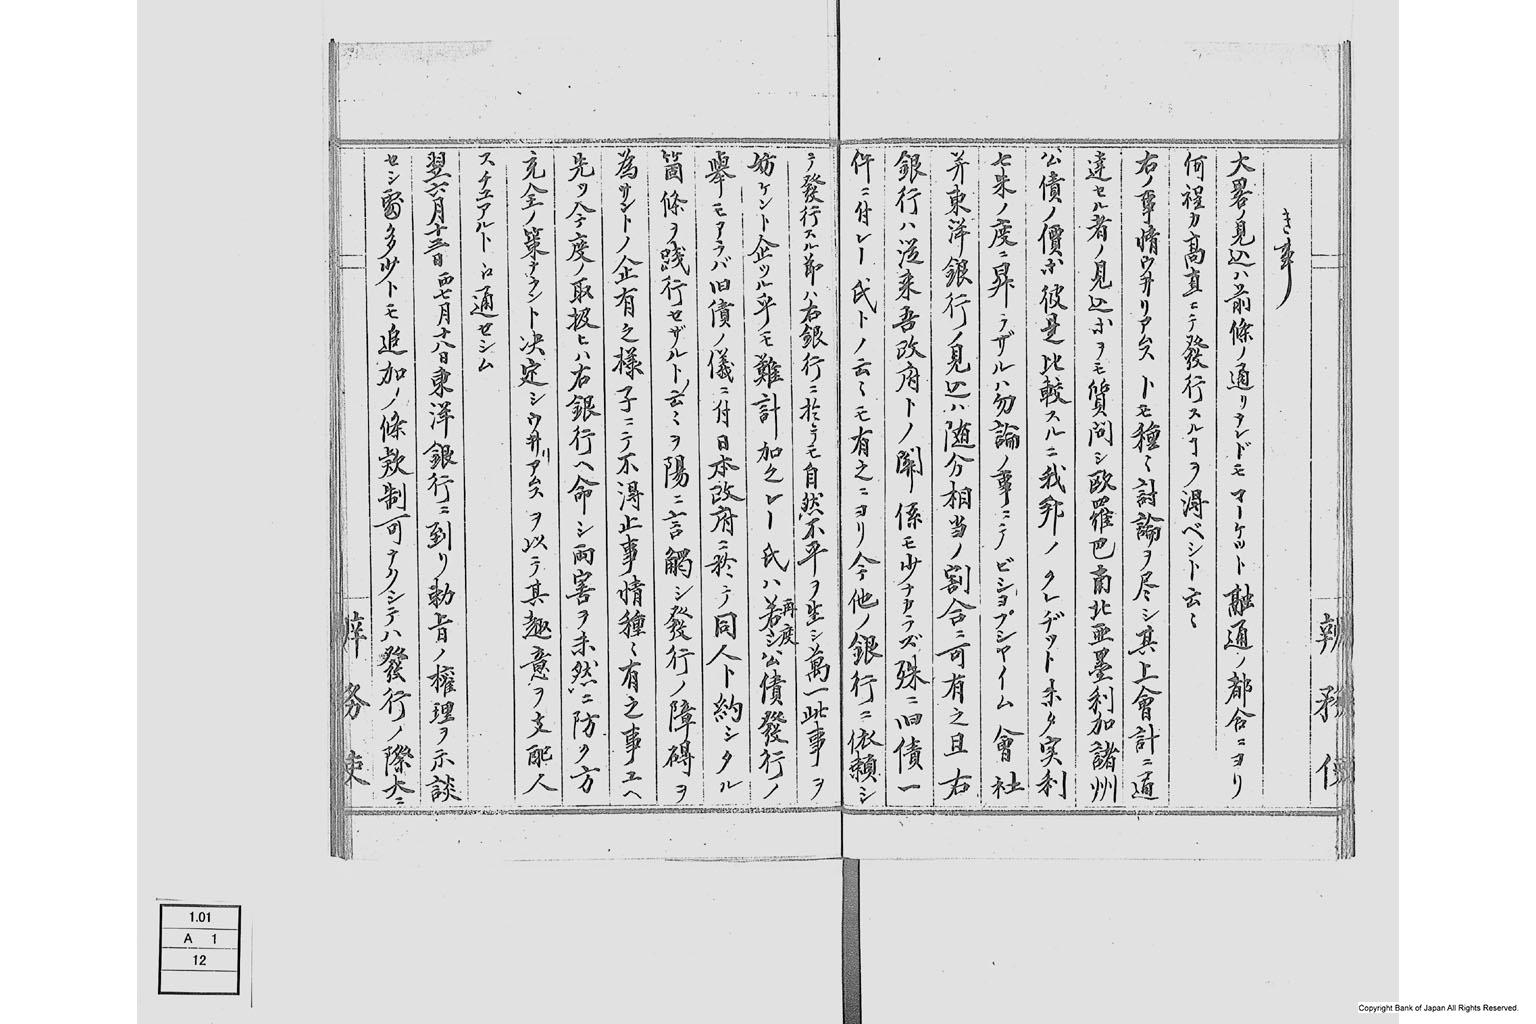 き事
大畧ノ見込ハ前條ノ通リナレドモマーケツト融通ノ都合ニヨリ
何程カ高直ニテ發行スルヿヲ得ベシト云々
右ノ事情ウ井リアムストモ種々討論ヲ尽シ其上會計ニ通
達セル者ノ見込ホヲモ質問シ歐羅巴南北亜墨利加諸州
公債ノ價ホ彼是比較スルニ我邦ノクレデット未タ実利
七朱ノ度ニ昇ラザルハ勿論ノ事ニテビショプシヤイム會社
并東洋銀行ノ見込ハ随分相当ノ割合ニ可有之且右
銀行ハ従来吾政府トノ関係モ少ナカラズ殊ニ旧債一
件ニ付レー氏トノ云々モ有之ニヨリ今他ノ銀行ニ依頼シ
テ發行スル節ハ右銀行ニ於テモ自然不平ヲ生シ萬一此事ヲ
妨ケント企ツル乎モ難計加之レー氏ハ若シ再度公債發行ノ
挙モアラバ旧債ノ儀ニ付日本政府ニ於テ同人ト約シタル
箇條ヲ践行セザルト云々ヲ陽ニ言觸シ發行ノ障碍ヲ
為サントノ企有之様子ニテ不得止事情種々有之事ユヘ
先ツ今度ノ取扱ヒハ右銀行ヘ命シ両害ヲ未然ニ防クカ
完全ノ策ナラント决定シウ井リアムスヲ以テ其趣意ヲ支配人
スチユアルトニ通セシム
翌六月十三日西七月十八日東洋銀行ニ到リ勅旨ノ權理ヲ示談
セシ處多少トモ追加ノ條欵制可ナクシテハ發行ノ際大ニ
辨務使
辨務使
1.01
A 1
12
Copyright Bank of Japan All Rights Reserved.